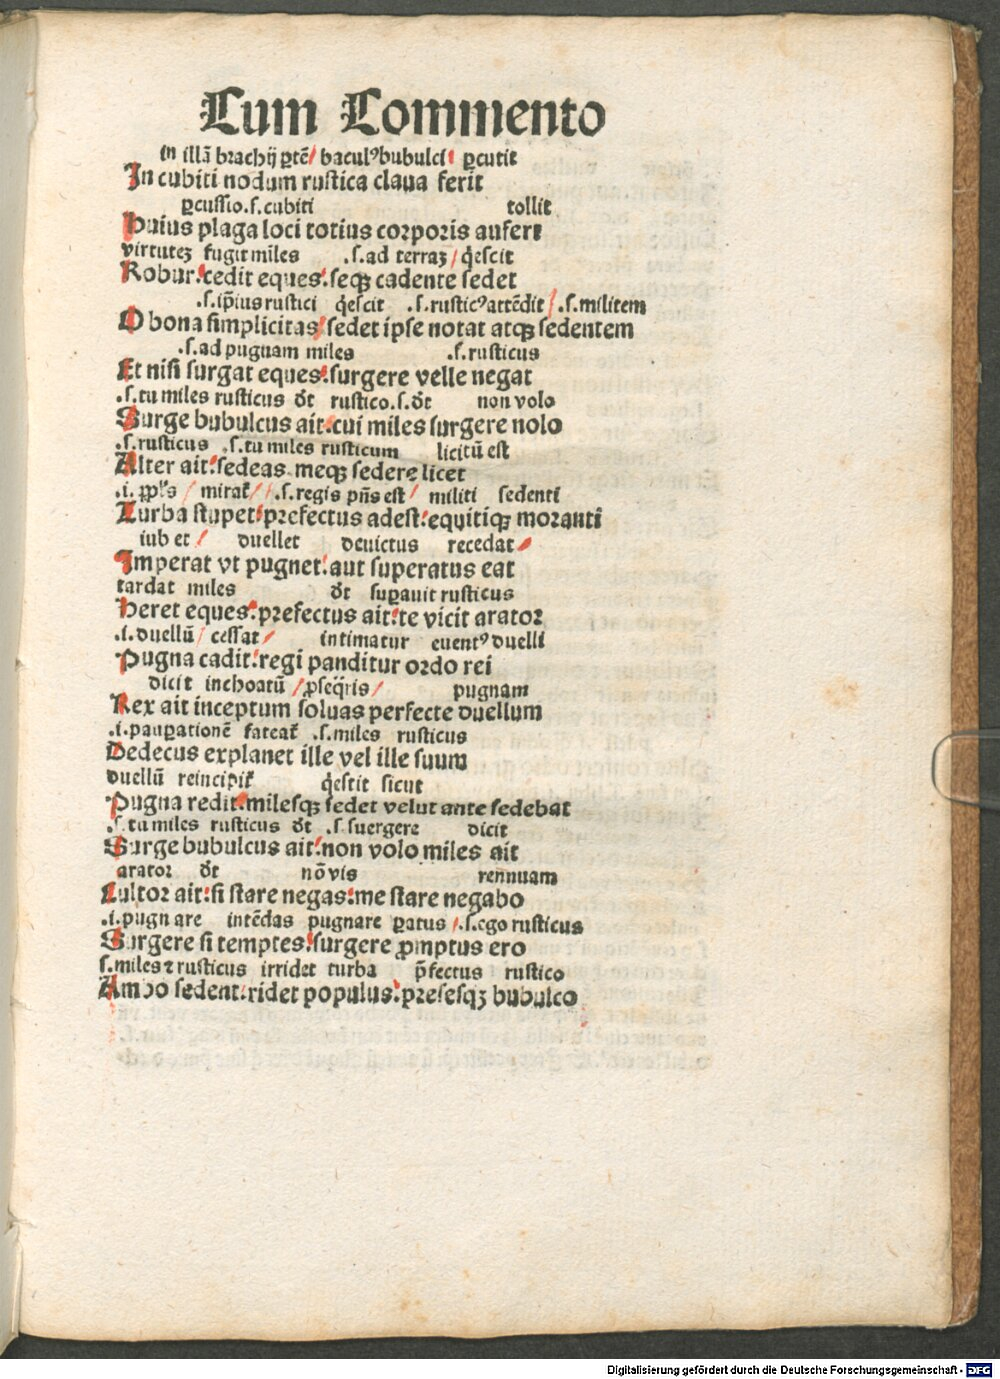 Cum Commento
in illã brachij ꝑtẽ / bacul⁹ bubulci ꝑcutit
In cubiti nodum rustica claua ferit
ꝑcussio .s. cubiti tollit
Huius plaga loci totius corporis aufert
virtutez fugit miles .s. ad terraz / q̃escit
Robur: cedit eques: seqꝫ cadente sedet
.s. ip̃ius rustici q̃escit .s. rustic⁹ attẽdit / .s. militem
O bona simplicitas / sedet ipse notat atqꝫ sedentem
.s. ad pugnam miles .s. rusticus
Et nisi surgat eques: surgere velle negat
.s. tu miles rusticus dt̃ rustico .s. dt̃ non volo
Surge bubulcus ait: cui miles surgere nolo
.s. rusticus .s. tu miles rusticum licitũ est
Alter ait: sedeas meqꝫ sedere licet
.i. ppl̃s / mirat̃ / .s. regis pñs est / militi sedenti
Turba stupet: prefectus adest: equitiqꝫ moranti
iubet / duellet deuictus recedat
Imperat vt pugnet: aut superatus eat
tardat miles dt̃ suꝑauit rusticus
Heret eques: prefectus ait: te vicit arator
.i. duellũ / cessat / intimatur euent⁹ duelli
Pugna cadit: regi panditur ordo rei
dicit inchoatũ / ꝓseq̃ris / pugnam
Rex ait inceptum soluas perfecte duellum
.i. pauꝑationẽ fateat̃ .s. miles rusticus
Dedecus explanet ille vel ille suum
duellũ reincipit̃ q̃escit sicut
Pugna redit: milesqꝫ sedet velut ante sedebat
.s. tu miles rusticus dt̃ .s. suergere dicit
Surge bubulcus ait: non volo miles ait
arator dt̃ nõ vis rennuam
Cultor ait: si stare negas: me stare negabo
.i. pugnare intẽdas pugnare ꝑatus / .s. ego rusticus
Surgere si temptes: surgere ꝓmptus ero
s. miles ⁊ rusticus irridet turba p̃fectus rustico
Ambo sedent: ridet populus: presesqꝫ bubulco
Digitalisierung gefördert durch die Deutsche Forschungsgemeinschaft - DFG